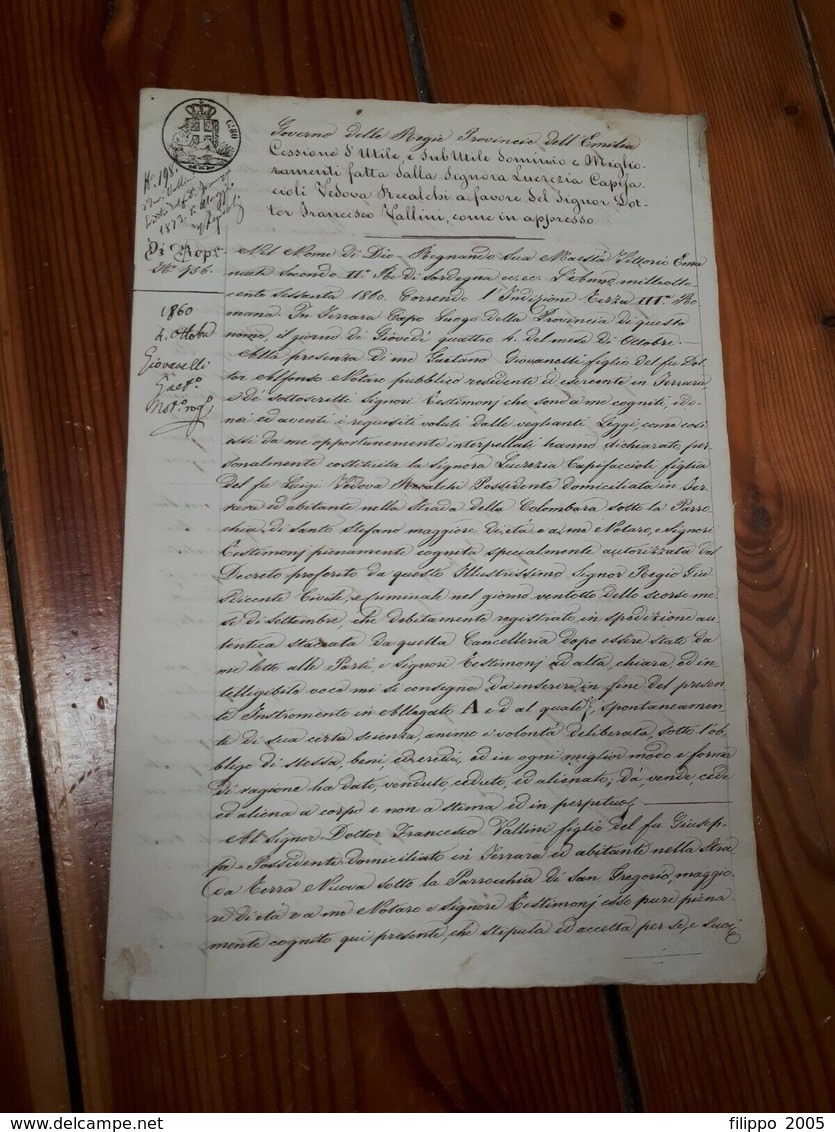 C. 80
N. 198.
1873.
Di Rep.
N.° 456.
1860
4. Ottobre
Giovanelli
Gaet.°
Not.° rog.°
Governo delle Regie Provincie dell'Emilia
Cessione d'Utile, e SubUtile dominio e Miglio=
ramenti fatta dalla Signora Lucrezia Capifa=
cioli Vedova Recalchi a favore del Signor Dot=
tor Francesco Vallini, come in appresso
Nel Nome di Dio - Regnando Sua Maestà Vittorio Ema
nuele Secondo II.° Re di Sardegna ec. ec. L'Anno milleotto
cento Sessanta 1860. Correndo l'Indizione Terza III.ª Ro
mana. In Ferrara Capo Luogo della Provincia di questo
nome, il giorno di Giovedì quattro 4. del mese di Ottobre.
Alla presenza di me Gaetano Giovanelli figlio del fu Dot
tor Alfonso Notaro pubblico residente ed esercente in Ferrara,
e dei sottoscritti Signori Testimonj che sono a me cogniti, ido
nei ed aventi i requisiti voluti dalle veglianti Leggi, come così
essi da me opportunemente interpellati hanno dichiarato, per
sonalmente costituita la Signora Lucrezia Capifaccioli figlia
del fu Luigi Vedova Recalchi Possidente domiciliata in Fer
rara ed abitante nella Strada della Colombara sotto la Parro
chia di Santo Stefano maggiore di età e a me Notaro, e Signori
Testimonj pienamente cognita specialmente autorizzata dal
Decreto proferito da questo Illustrissimo Signor Regio Giu
dicente Civile, e Criminale nel giorno ventotto dello scorso me
se di Settembre, che debitamente registrato in spedizione au
tentica staccata da questa Cancelleria dopo essere stato da
me letto alle Parti, e Signori Testimonj ad alta, chiara ed in
telligibile voce mi si consegna da inserire in fine del presen
te Instromento in Allegato A e d al quale, spontaneamen
te di sua certa scienza, animo e volontà deliberata, sotto l'ob
bligo di stessa, beni, ed eredi, ed in ogni miglior modo e forma
di ragione ha dato, venduto, ceduto, ed alienato; dà, vende, cede
ed aliena a corpo e non a stima ed in perpetuo
Al Signor Dottor Francesco Vallini figlio del fu Giusep
pe Possidente domiciliato in Ferrara ed abitante nella Stra
da Terra Nuova sotto la Parrocchia di San Gregorio, maggio
re di età e a me Notaro e Signori Testimonj esso pure piena
mente cognito qui presente, che stipula ed accetta per se, e Succ
filippo 2005